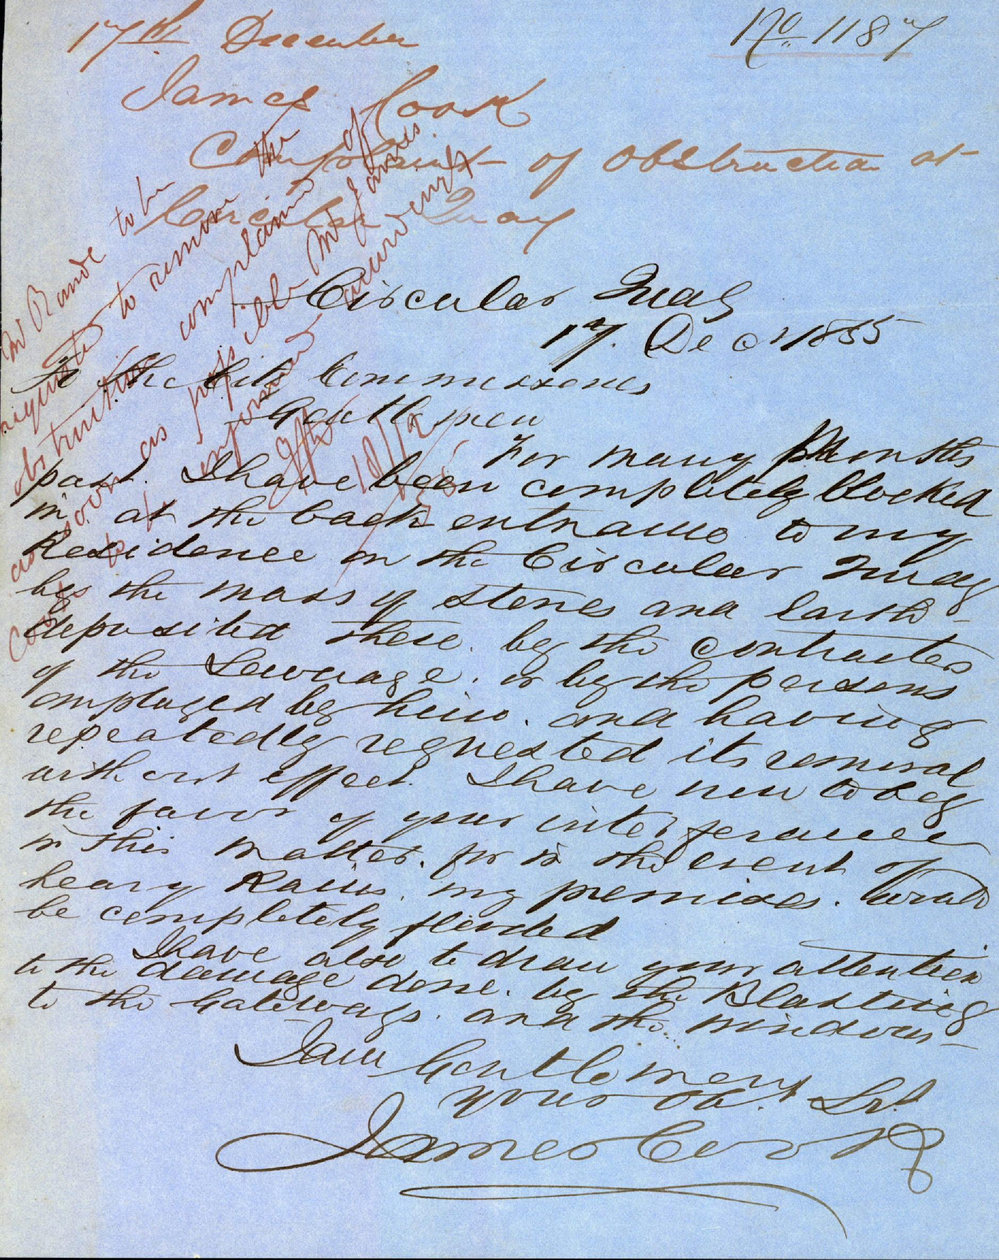 No. 1187
17th December
James Cook
Complaint of Obstruction at
Circular Quay
Circular Quay
17. Decr 1855
To the City Commissioners
Gentlemen
For many Months
past. I have been completely blocked
in, at the back entrance to my
Residence on the Circular Quay
by the mass of stones and Earth
deposited there. by the contractor
of the Sewerage. or by the persons
employed by him. and having
repeatedly requested its removal
without effect. I have now to beg
the favor of your interference
in this matter. for in the event of
heavy Rains. my premises. would
be completely flooded
I have also to draw your attention
to the damage done. by the Blasting
to the Gateways. and the windows
I am Gentlemen
your Ob.t Srt
James Cook
Mr Rande to be
requested to remove the
obstruction complained of
as soon as possible Mr James
Cook to be informed
18/12/55